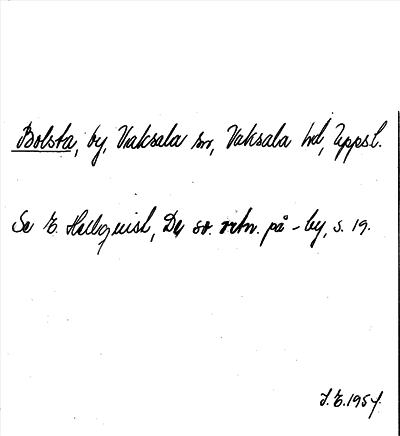 Bolsta, by, Vaksala sn, Vaksala hd, Uppsl.
Se E. Hellquist, De sv. ortn. på -by, s. 19.
J.E. 1954.